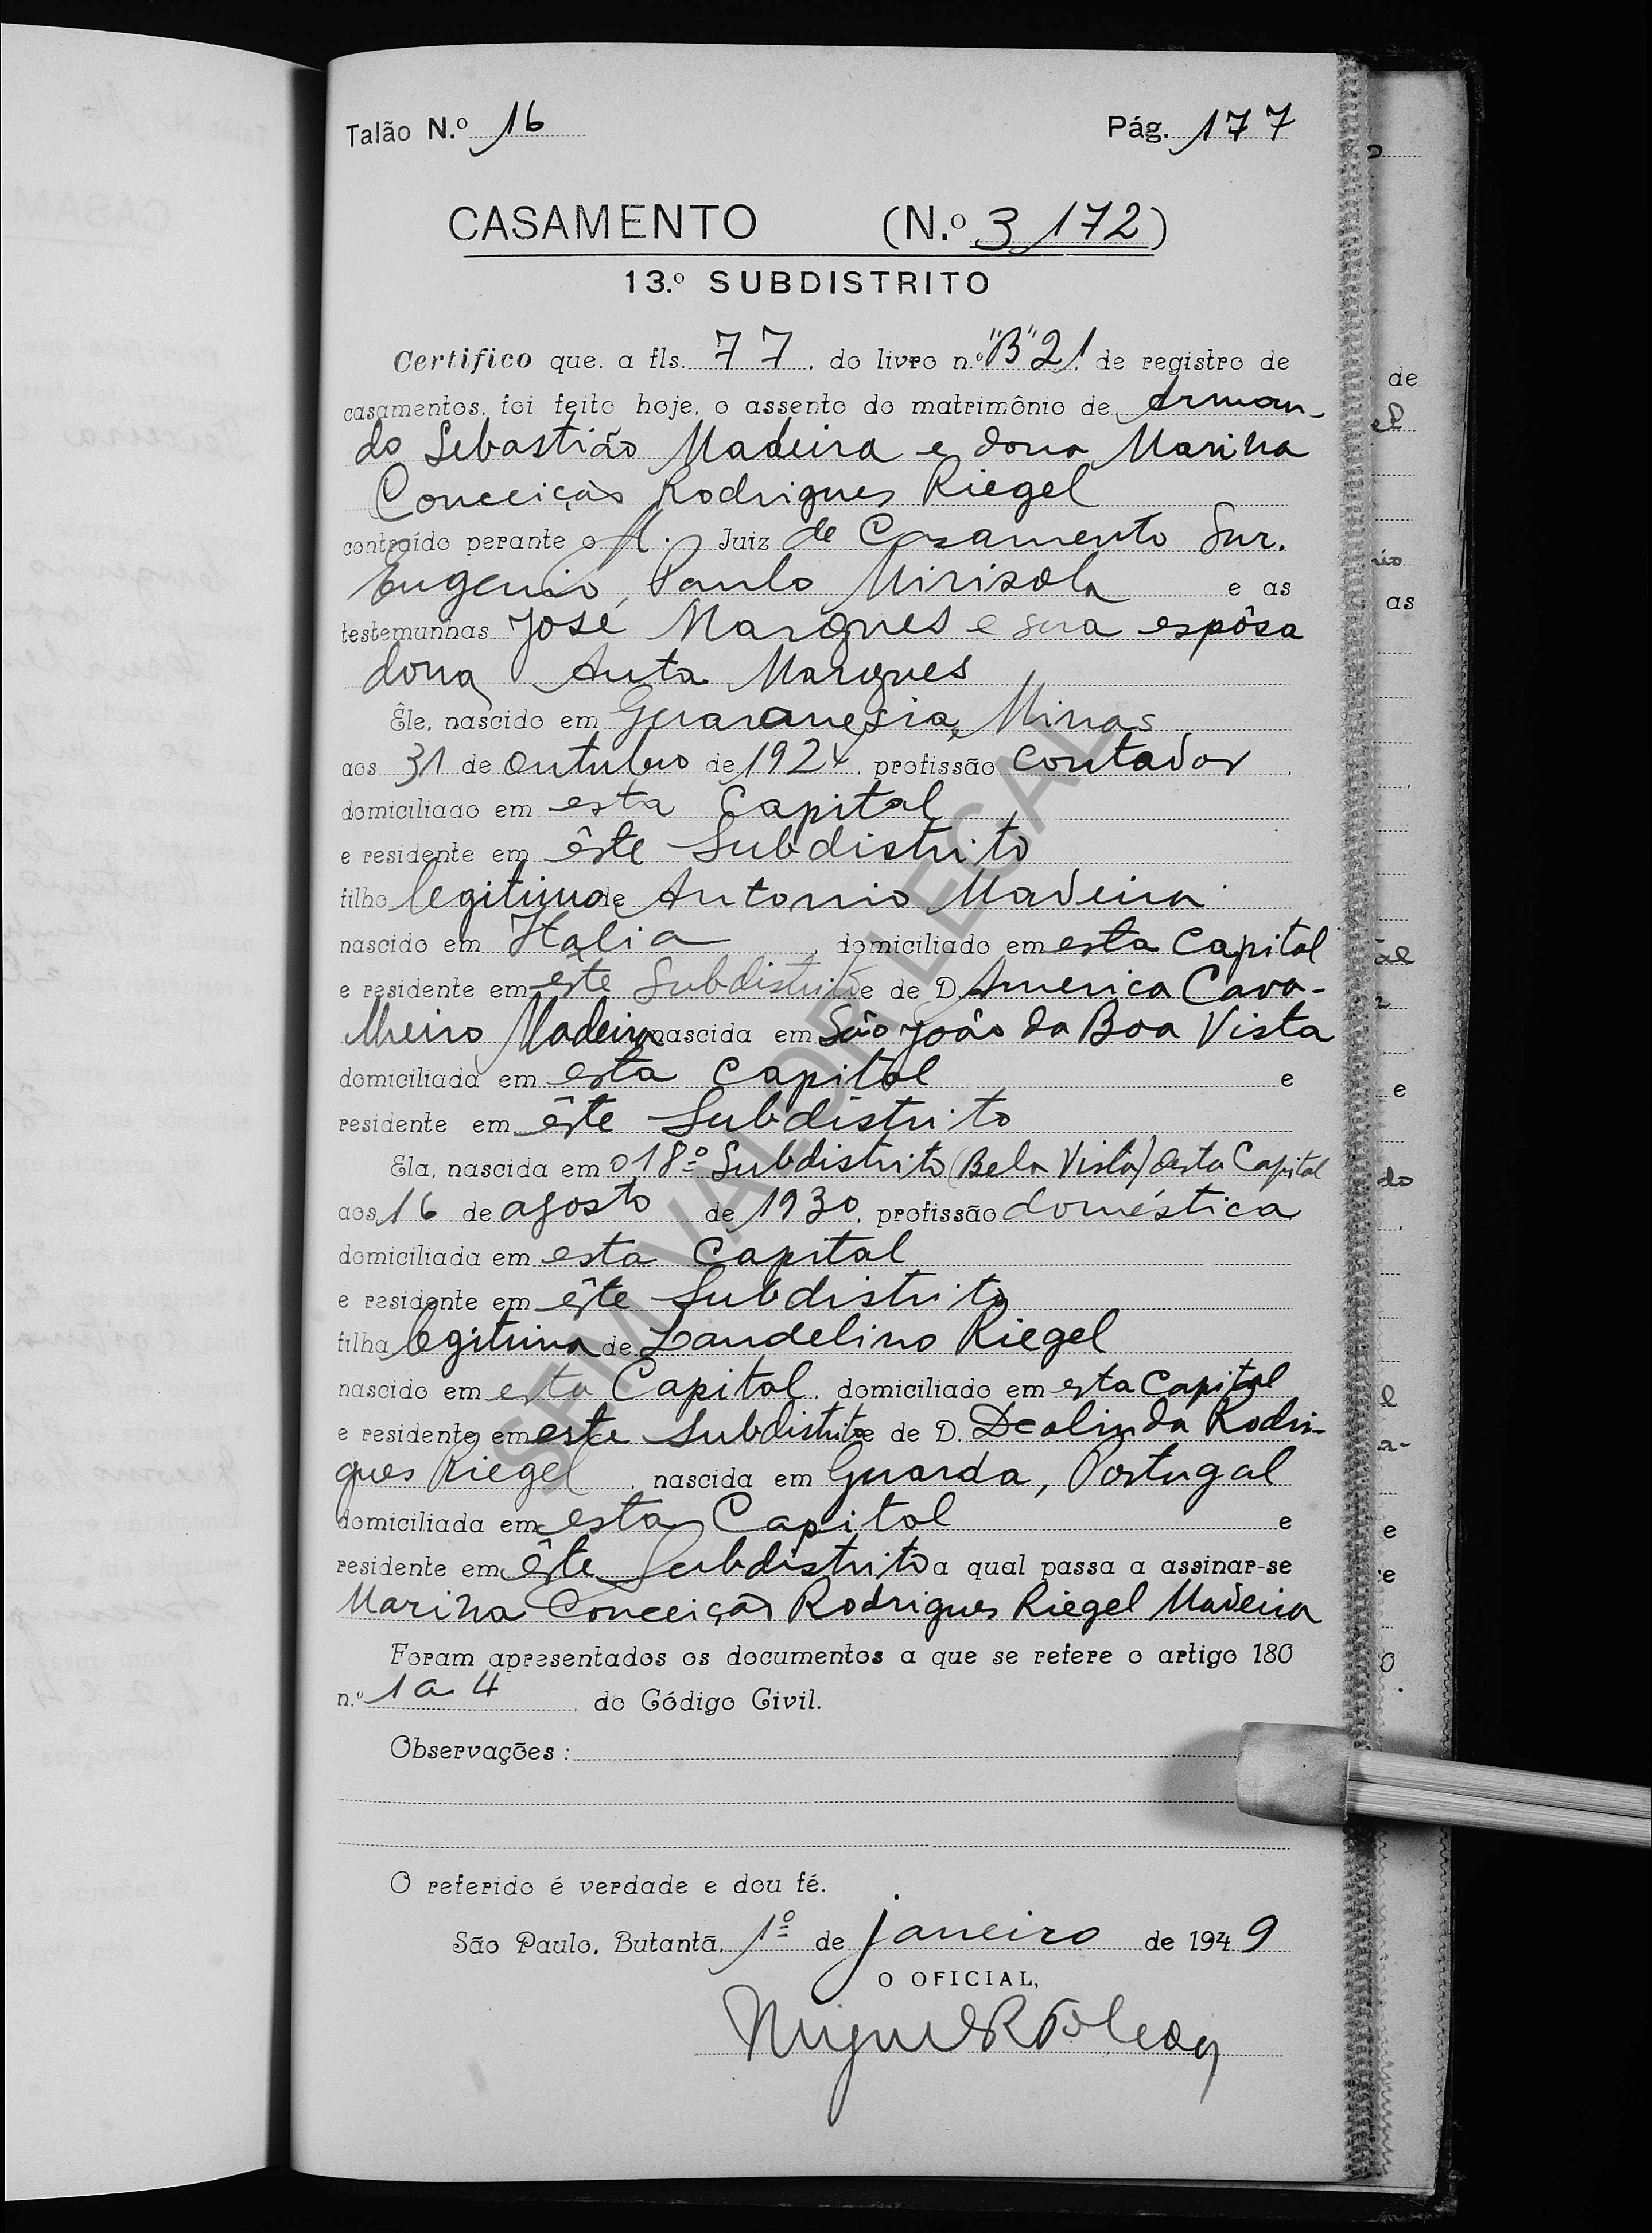 Talão N.º 16 Pág. 177
CASAMENTO (N.º 3172)
13.º SUBDISTRITO
Certifico que, a fls. 77, do livro n.º "B" 21, de registro de
casamentos, foi feito hoje, o assento do matrimônio de Arman-
do Sebastião Madeira e dona Marina
Conceição Rodrigues Riegel
contraído perante o M. Juiz de Casamento Snr.
Eugenio Paulo Mirisola e as
testemunhas José Marques e sua espôsa
dona Anta Marques
Êle, nascido em Guaranesia, Minas
aos 31 de Outubro de 1924, profissão contador,
domiciliado em esta Capital
e residente em êste Subdistrito
filho legitimo de Antonio Madeira
nascido em Italia, domiciliado em esta Capital
e residente em êste Subdistrito e de D. America Cava-
lheiro Madeira nascida em São João da Boa Vista
domiciliada em esta Capital e
residente em êste Subdistrito
Ela, nascida em o 18º Subdistrito (Bela Vista) desta Capital
aos 16 de agosto de 1930, profissão doméstica
domiciliada em esta Capital
e residente em êste Subdistrito
filha legitima de Laudelino Riegel
nascido em esta Capital, domiciliado em esta Capital
e residente em este Subdistrito e de D. Deolinda Rodri-
gues Riegel, nascida em Guarda, Portugal
domiciliada em esta Capital e
residente em êste Subdistrito a qual passa a assinar-se
Marina Conceição Rodrigues Riegel Madeira
Foram apresentados os documentos a que se refere o artigo 180
n.º 1 a 4, do Código Civil.
Observações:
O referido é verdade e dou fé.
São Paulo, Butantã, 1º de janeiro de 1949
O OFICIAL,
SEM VALOR LEGAL